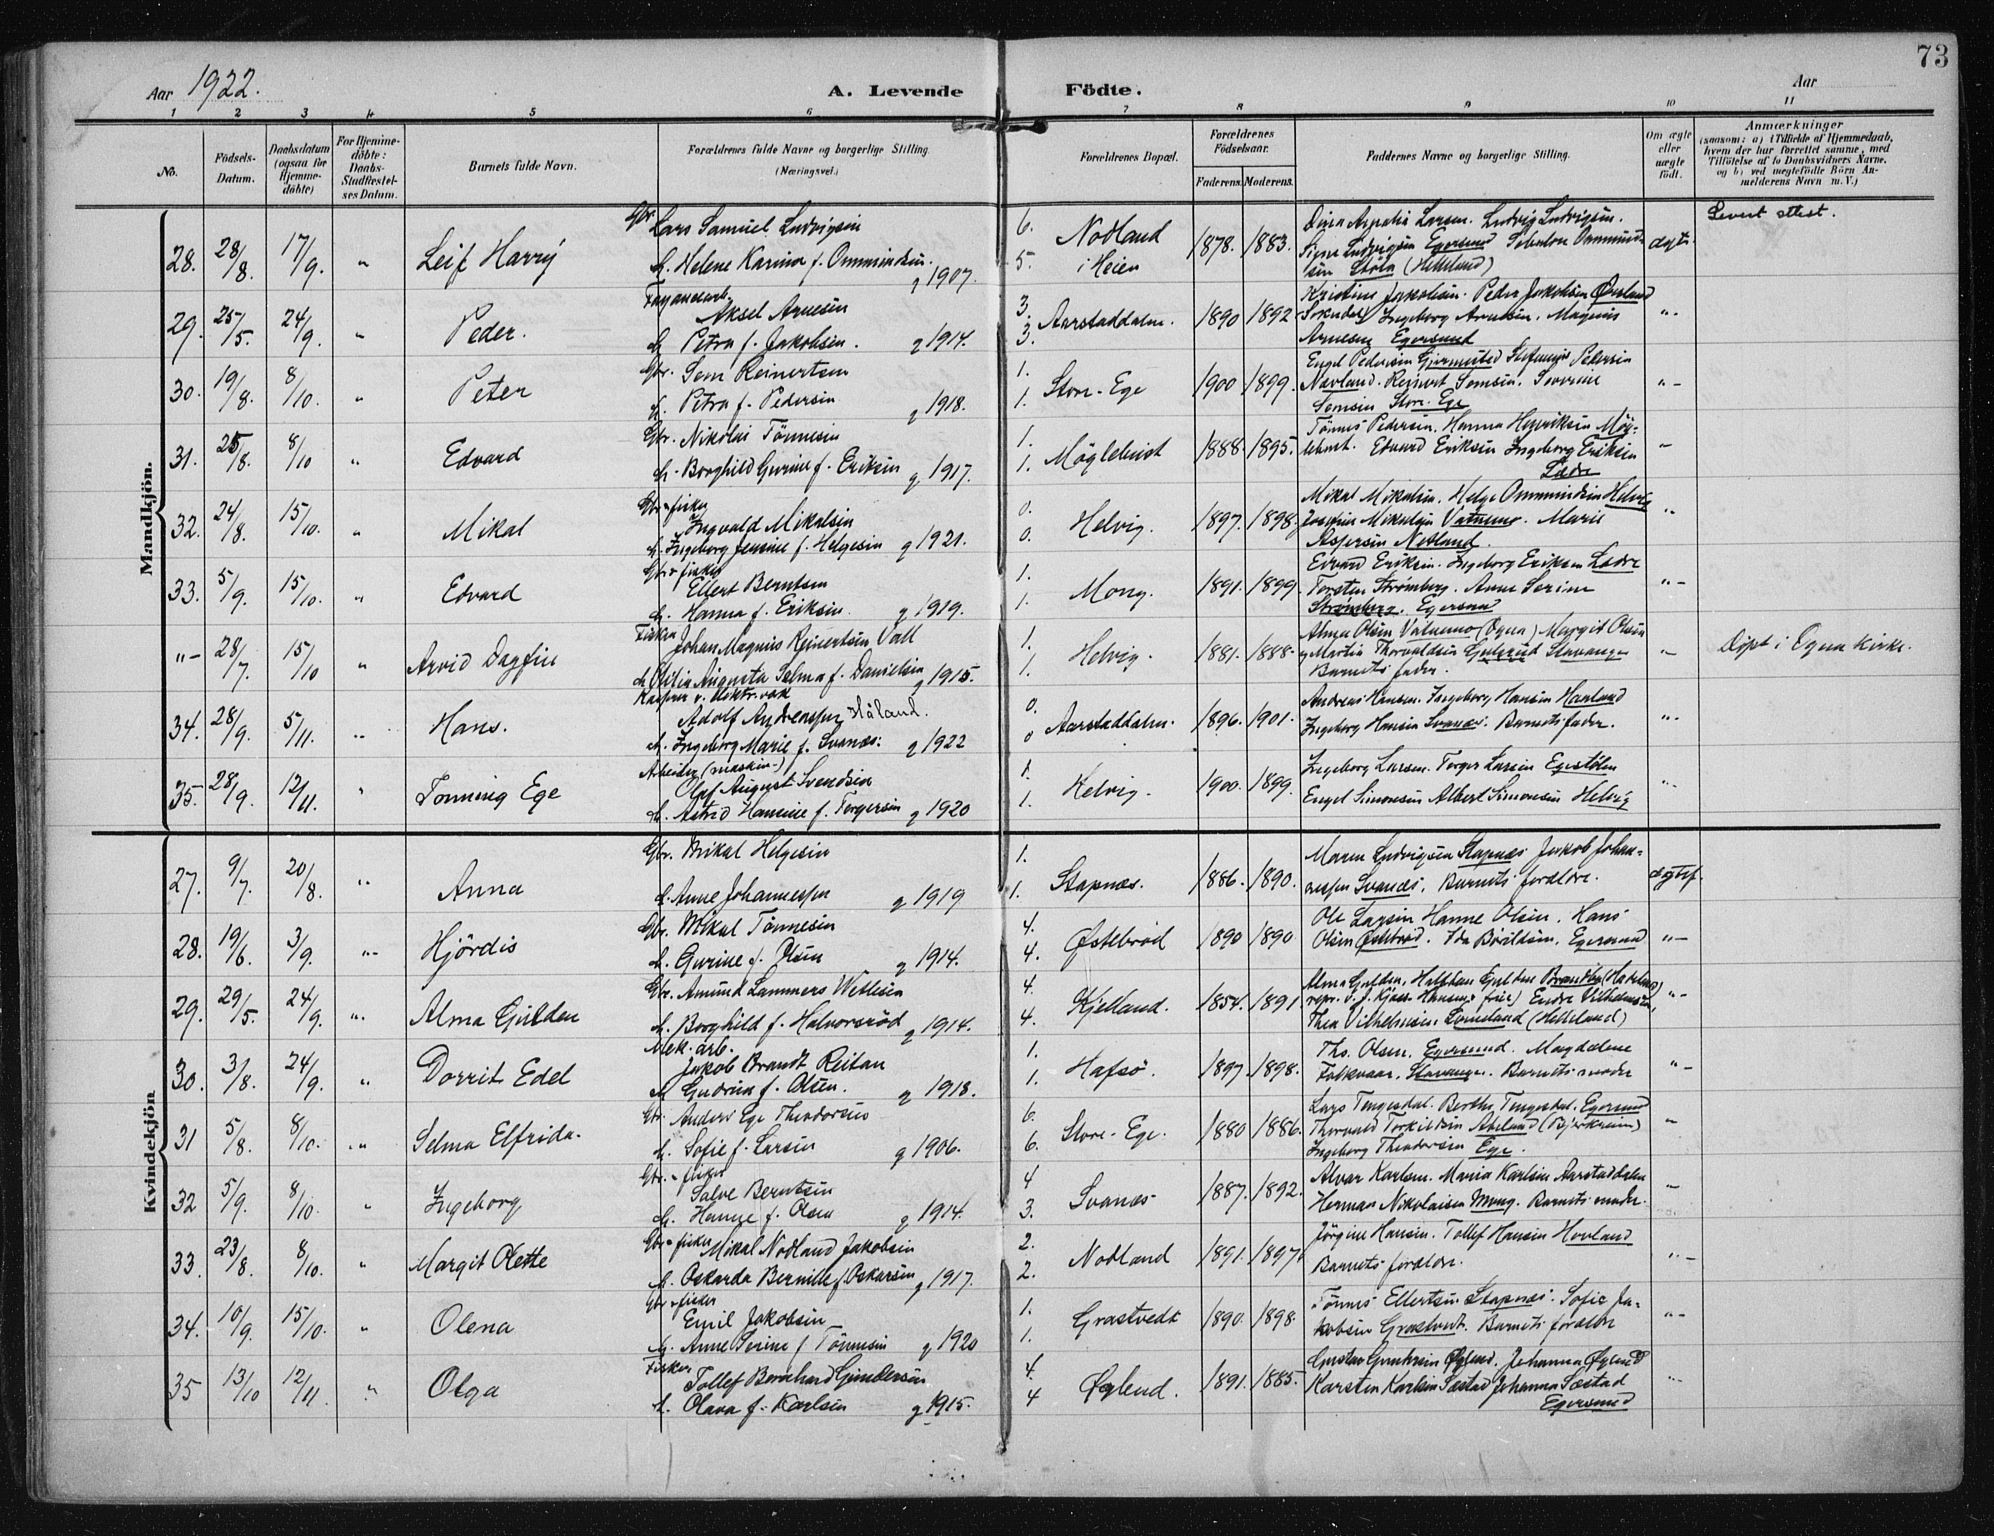 73
Aar 1922.
A. Levende Födte.
Aar
1 2 3 4 5 6 7 8 9 10 11
No.
Födsels-Datum.
Daabsdatum (ogsaa for Hjemme-döbte)
For Hjemme-döbte: Daabs-Stadfæstel-ses Datum.
Barnets fulde Navn.
Forældrenes fulde Navne og borgerlige Stilling.
(Næringsvei.)
Forældrenes Bopæl.
Forældrenes Födselsaar.
Faderens. Moderens.
Faddernes Navne og borgerlige Stilling.
Om ægte eller uægte födt.
Anmærkninger
(saasom: a) i Tilfælde af Hjemmedaab, hvem der har forrettet samme, med Tilföielse af to Daabsvidners Navne, og b) ved uægtefödte Börn An-melderens Navn m. V.)
Mandkjön.
28. 28/8. 17/9. " Leif Harry
Gbr. Lars Samuel Ludvigsen
h. Helene Karina f. Ommundsen. g 1907.
6. 5. Nodland i Heien 1878. 1883.
Larsen. Ludvig Ludvigsen.
Signe Ludvigsen Egersund
Stöla (Helleland)
ægte.
Levert attest.
29. 25/5. 24/9. " Peder.
Aksel Arnesen
h Petra f. Jakobsen. g 1914.
3. 3. Aarstaddalen. 1890 1892
Kristine Jakobsen. Peder Jakobsen Øvrland
Ingeborg Arnesen. Magnus
Arnesen Egersund
"-
30. 19/8. 8/10. " Peter
Gbr. Sem Reinertsen
h. Petra f. Pedersen g 1918.
1. 1. Store-Ege 1900 1899.
Engel Pedersen Gjermestad Stefanus Pedersen
Nævland. Reinert Semsen. Severine
Semsen Store-Ege
"-
31. 25/8. 8/10 " Edvard
Gbr. Nikolai Tönnesen
h. Borghild Gurine f. Eriksen g 1917.
1. 1. Möglehust 1888. 1895.
Tönnes Pedersen. Hanna Henriksen Mög-
lehust. Edvard Eriksen Ingeborg Eriksen
Lædre
"
32. 24/8. 15/10. " Mikal
Gbr + fisker
Ingvald Mikalsen
h. Ingeborg Jensine f. Helgesen g 1921.
0. 0. Helvig. 1897. 1898.
Mikal Mikalsen. Helge Ommundsen Helvig
Josefine Mikalsen Vatnemo. Marie
Aspersen Nodland.
"
33. 5/9. 15/10. " Edvard
Gbr + fisker
Ellert Berntsen
h. Hanna f. Eriksen. g 1919.
1. 1. Mong. 1891. 1899
Edvard Eriksen. Ingeborg Eriksen Lædre
Torsten Strömberg. Anne Serine
Strömberg. Egersund
"-
"- 28/7. 15/10 " Arvid Dagfin
Fisker Johan Magnus Reinertsen Vall
h Otilia Augusta Selma f. Danielsen g 1915.
1. 1. Helvig. 1881. 1888.
Alma Olsen Vatnemo (Ogna) Margit Olsen
g Martin Thorvaldsen Stavanger
Barnets fader.
" Döpt i Egna kirke.
34. 28/9. 5/11. " Hans.
Adolf Andreassen Håland.
h. Ingeborg Marie f. Svanæs. g 1922
0. 0 Aarstaddalen. 1896. 1901.
Andreas Hansen. Ingeborg Hansen Hovland
Ingeborg Hansen Svanæs. Barnets fader.
"-
35. 28/9. 12/11. " Tonning Ege
Arbeider (maskin-)
Olaf August Svendsen
h. Astrid Hansine f. Torgersen g 1920
1. 1. Helvig. 1900. 1899.
Ingeborg Larsen. Torger Larsen Egestölen
Engel Simonsen Albert Simonsen Helvig
"-
Kvindekjön
27. 9/7. 20/8. " Anna
Gbr. Mikal Helgesen
h. Anne Johannessen g 1919
1. 1. Stapnæs. 1886. 1890.
Maren Ludvigsen Stapnæs Jakob Johan-
nessen Svanæs. Barnets forældre.
ægtef.
28. 19/6. 3/9. " Hjördis
Gbr. Mikal Tönnesen
h. Gurine f. Olsen g 1914.
4. 4. Østebröd 1890 1890
Ole Larsen Hanne Olsen. Hans
Olsen Østebröd. Ida Bövildsen. Egersund
"-
29. 29/5. 24/9. " Alma Gulden
Gbr. Amund Lammers Wetlesen
h. Borghild f. Halvorsröd g 1914.
4. 4. Kjelland. 1854. 1891
Alma Gulden, Halfdan Gulden
repr. v. J. Kjöss-Hansen + frue) Endre Vilhelmsen,
Thea Vilhelmsen. (Helleland)
"-
30. 3/8. 24/9. " Dorrit Edel
Mek. arb.
Jakob Brandt Reitan
h Gudrun f. Olsen. g 1918.
1. 1. Hafsö. 1897. 1898.
Ths. Olsen. Egersund. Magdalene
Folkvaar. Stavanger. Barnets moder
"-
31 5/8. 8/10. " Selma Elfrida.
Gbr. Anders Ege Theodorsen
h. Sofie f. Larsen g 1906.
6. 6. Store-Ege. 1880 1886.
Lars Tengesdal. Berthe Tengesdal. Egersund
Thorvald Torkildsen Aaseland (Bjerkreim)
Ingeborg Theodorsen Ege.
"
32 5/9. 8/10. " Ingeborg
Gbr. + fisker
Salve Berntsen
h. Hanne f. Olsen g 1914.
4 3. Svanæs 1887. 1892.
Alvar Karlsen. Maria Karlsen Aarstaddalen
Herman Nikolaisen Mong. Barnets moder.
"
33. 23/8. 8/10. " Margit Olette
Gbr + fisker Mikal Nodland Jakobsen
h. Oskarda Bernille f. Oskarsen g 1917.
2. 2. Nodland 1891. 1897.
Jörgine Hansen. Tollef Hansen Hovland
Barnets forældre.
"-
34. 10/9. 15/10. " Olena
Gbr + fisker
Emil Jakobsen
h. Anne Serine f. Tönnesen g 1920
1. 1. Grastvedt 1890. 1898.
Tönnes Ellertsen Stapnæs. Sofie Ja-
kobsen Grastvedt. Barnets forældre
"-
35 13/10 12/11. " Olga
Fisker
Tollef Bernhard Gundersen
h. Olava f. Karlsen g 1915.
4. 4 Øglend. 1891. 1885.
Gustav Gundersen Øglend. Johanna Øglend
Karsten Karlsen Sæstad Johanna Sæstad
Egersund
"-